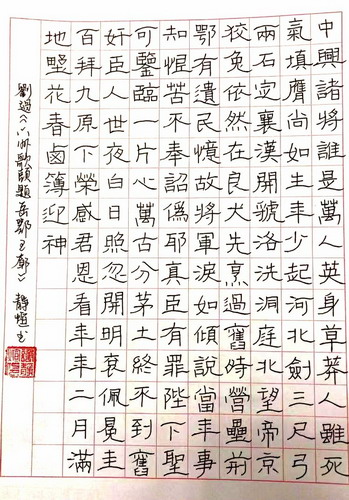 中興諸將誰是萬人英身草莽人雖死
氣填膺尚如生年少起河北劍三尺弓
兩石定襄漢開虢洛洗洞庭北望帝京
狡兔依然在良犬先烹過舊時營壘荊
鄂有遺民憶故將軍淚如傾說當年事
知恨苦不奉詔偽耶真臣有罪陛下聖
可鑒臨一片心萬古分茅土終不到舊
奸臣人世夜白日照忽開明袞佩冕圭
百拜九原下榮感君恩看年年二月滿
地墅花春鹵簿迎神
劉過《六州歌頭題岳鄂王廟》 靜 書